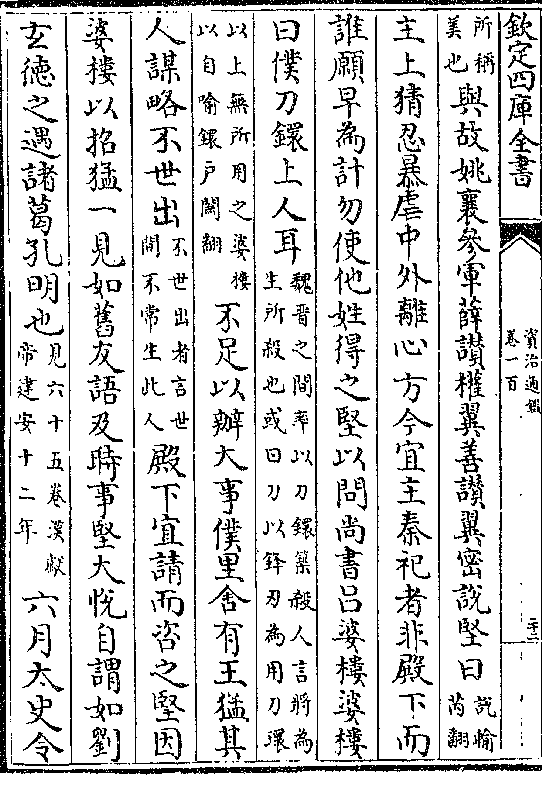 欽定四庫全書
資治通鑑
卷一百
二十二
所稱美也與故姚襄參軍薛讃權翼善讃翼密說堅曰說輸芮翻
主上猜忍暴虐中外離心方今宜主秦祀者非殿下而
誰願早為計勿使他姓得之堅以問尚書吕婆樓婆樓
曰僕刀鐶上人耳魏晉之間率以刀鐶築殺人言將為生所殺也或曰刀以鋒刃為用刀環
以上無所用之婆樓以自喻鐶戸關翻不足以辦大事僕里舍有王猛其
人謀略不世出不世出者言世間不常生此人殿下宜請而咨之堅因
婆樓以招猛一見如舊友語及時事堅大悅自謂如劉
玄德之遇諸葛孔明也見六十五卷漢獻帝建安十二年六月太史令